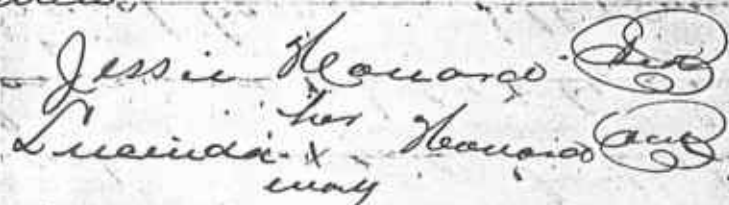 Jessie Howard Seal
her
Lucinda X Howard Seal
mark